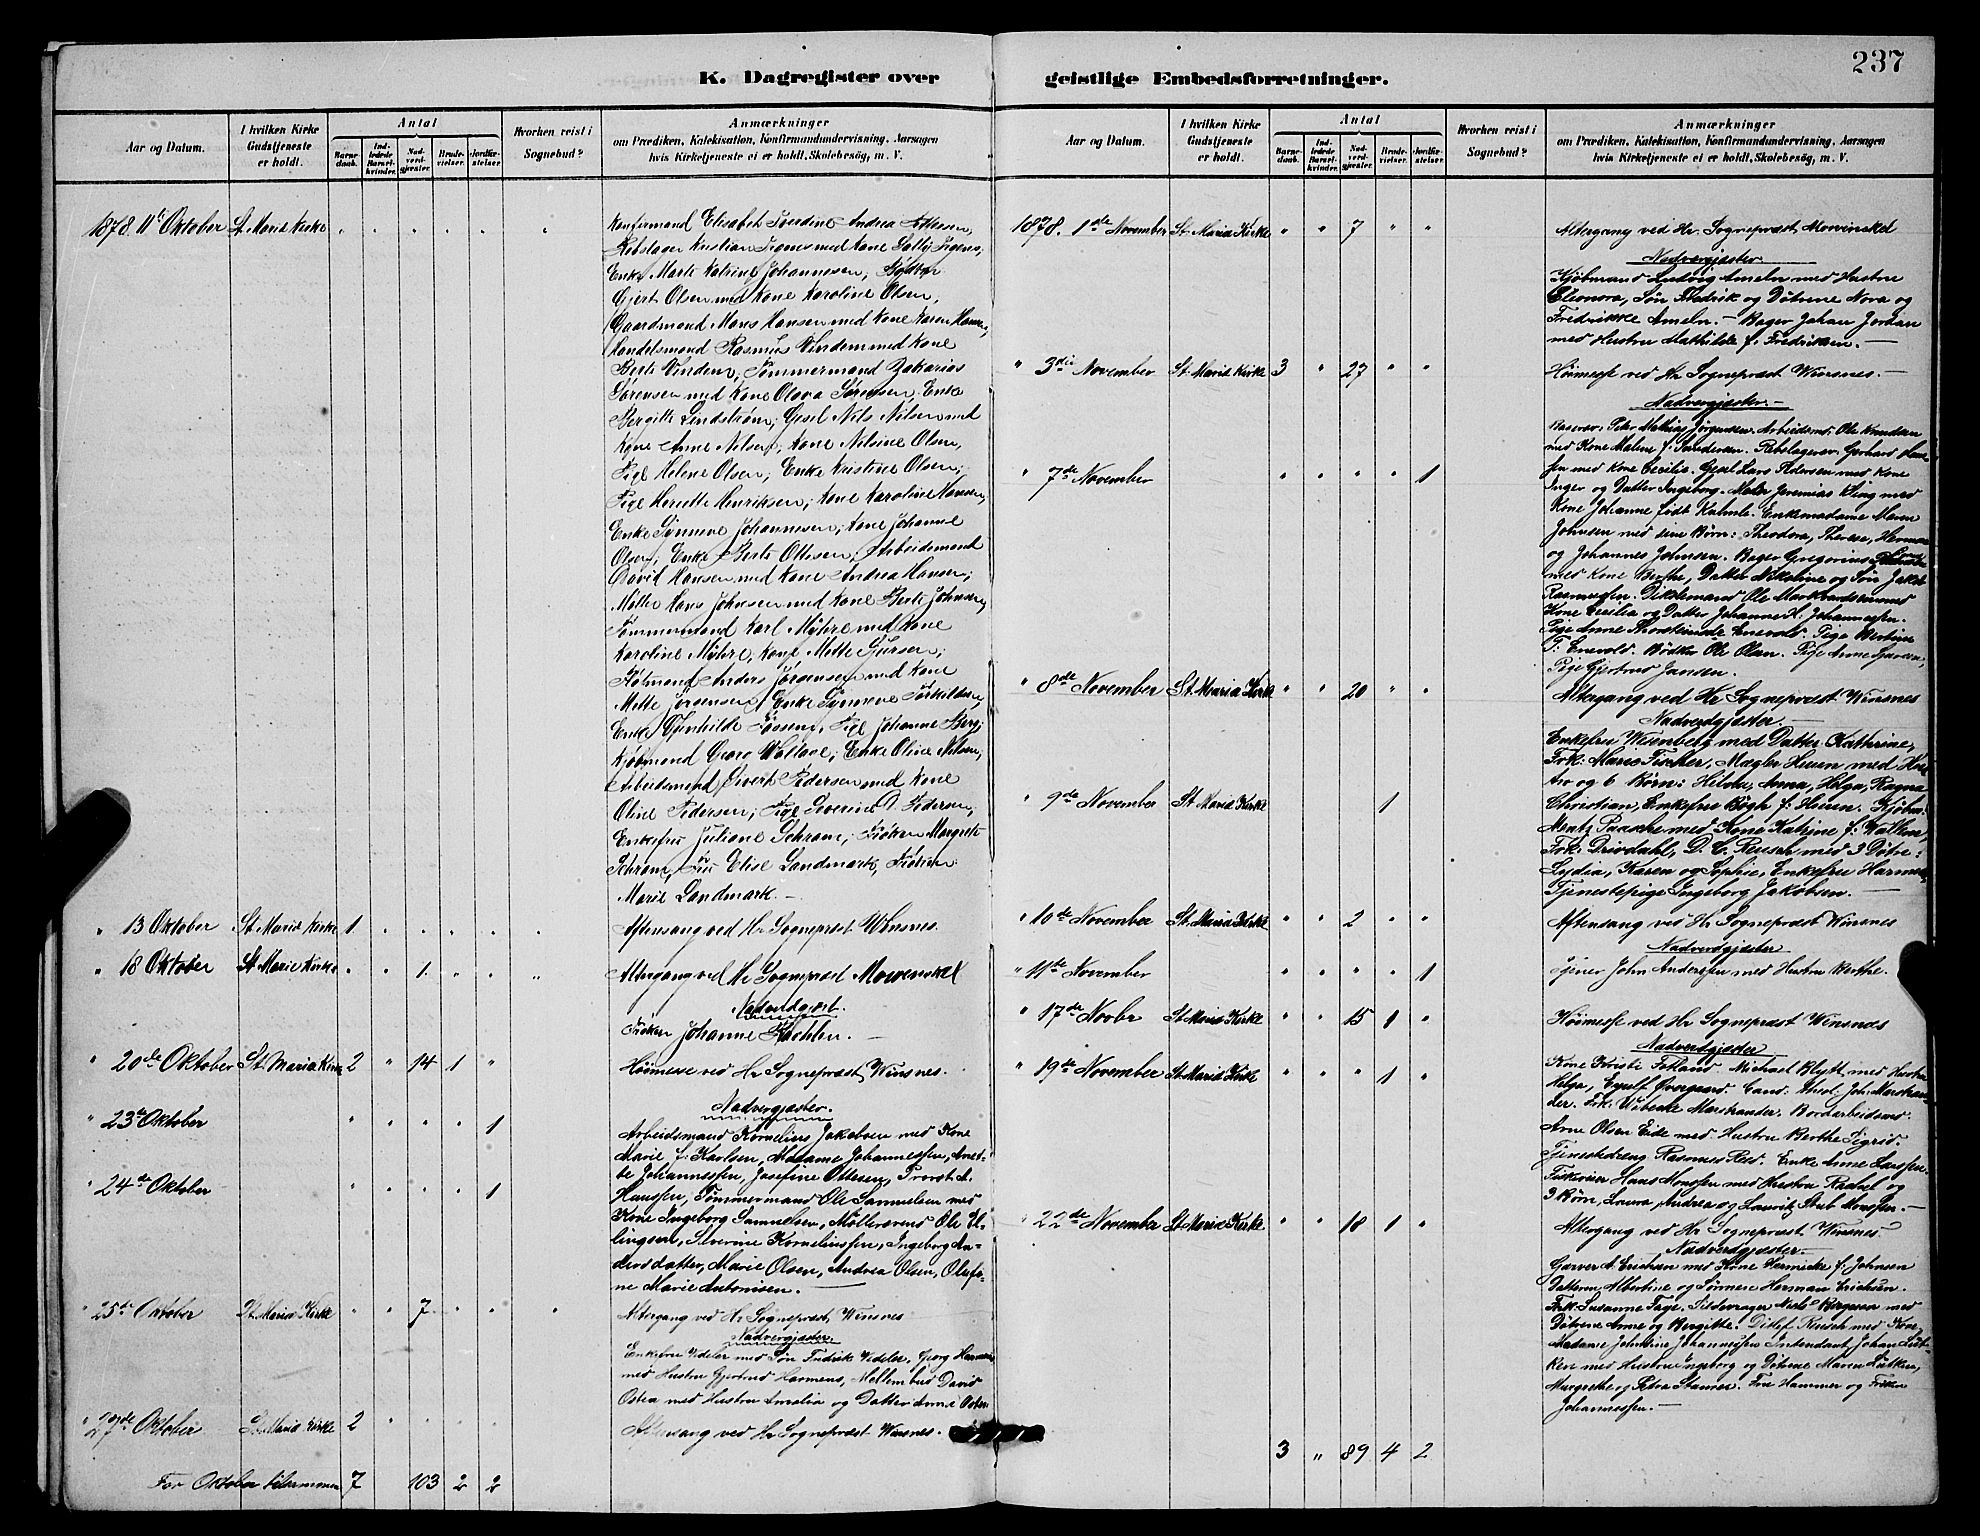 237
K. Dagregister over geistlige Embedsforretninger.
Aar og Datum.
I hvilken Kirke Gudstjeneste er holdt.
Antal
Barnedaab.
Indledede Barselkvinder.
Nadverdgjæster.
Brudevielser.
Jordfæstelser.
Hvorhen reist i Sognebud?
Anmærkninger
om Prædiken, Katekisation, Konfirmandundervisning, Aarsagen
hvis Kirketjeneste ei er holdt, Skolebesög, m. V.
1878. 11te Oktober St. Mariæ Kirke
Konfirmand Elisabet Andrea
Rebslager Kristian med Kone
Enke Marte Katrine Johannesen, Bødker
Gjert Olsen med Kone Karoline Olsen,
Gaardmand Mons Hansen med Kone Karen Hansen,
Handelsmand Rasmus Vindenes med Kone
Berte Vindenes, Tømmermand Zakarias
Sørensen med Kone Olava Sørensen, Enke
Bergitte Lindstrøm, Gesel Nils Nilsen med
Kone Anne Nilsen, Kone Nilsine Olsen,
Pige Helene Olsen, Enke Kristine Olsen;
Pige Henriksen; Kone Karoline Hansen,
Enke Synneve Johannesen; Kone Johanne
Olsen; Enke Berte Ottesen; Arbeidsmand
David Hansen med Kone Andrea Hansen;
Møller Hans Johnsen med Kone Berte Johnsen,
Tømmermand Karl Myhre med Kone
Karoline Myhre, Kone Mette
Anders Jørgensen med Kone
Mette Jørgensen, Enke Synneve
Enke Pige Johanne Berg;
Kjøbmand Georg Wallace; Enke Oline Nilsen,
Arbeidsmand Sivert Pedersen med Kone
Oline Pedersen; Pige Severine D. Pedersen,
Enkefru Juliane Schram; Frøken Margrete
Schram, Fru Elise Landmark, Frøken
Marie Landmark. —
" 13 Oktober St. Mariæ Kirke 1
Aftensang ved Hr Sognepræst Winsnes.
" 18 Oktober St. Mariæ Kirke 1.
Altergang ved Hr Sognepræst Mowinckel
Nadverdgæst.
Frøken Johanne
" 20de Oktober St. Maria Kirke 2 " 14 1 "
Høimesse ved Hr Sognepræst Winsnes.
Nadvergjæster.
" 23de Oktober 1
Arbeidsmand Kornelius Jakobsen med Kone
Marie f. Karlsen, Madame Johannessen, Anet-
te Johannessen, Josefine Ottesen, Provst A.
" 24de Oktober 1
Hanssen, Tømmermand Ole Samuelsen med
Kone Ingeborg Samuelsen, Møllersvend Ole El-
lingsen, Severine Korneliussen, Ingeborg An-
dersdatter, Marie Olsen, Andrea Olsen, Olefi-
ne Marie Antonisen.
" 25de Oktober St. Mariæ Kirke 7
Altergang ved Hr Sognepræst Winsnes
Nadvergjæster.
Enkefru Vedeler med Søn Fredrik Vedeler. Georg Harmens
med Hustru Gjertrud Harmens, David
med Hustru Amalia og Datter Anne
" 27de Oktober St. Mariæ Kirke 2
Aftensang ved Hr Sognepræst Winsnes.
For Oktober tilsammen 7 103 2 2
Aar og Datum.
I hvilken Kirke Gudstjeneste er holdt.
Antal
Barnedaab.
Indledede Barselkvinder.
Nadverdgjæster.
Brudevielser.
Jordfæstelser.
Hvorhen reist i Sognebud?
Anmærkninger
om Prædiken, Katekisation, Konfirmandundervisning, Aarsagen
hvis Kirketjeneste ei er holdt, Skolebesög, m. V.
1878. 1ste November St. Mariæ Kirke " " 7 " "
Altergang ved Hr. Sognepræst Mowinckel
Nadvergjæster
Kjøbmand Ludvig Ameln med Hustru
Eleonora, Søn Fredrik og Døtrene Nora og
Fredrikke Ameln. — Bager Johan Jordan
med Hustru Mathilde f. Fredriksen. —
" 3die November St. Mariæ Kirke 3 " 27 " "
Høimesse ved Hr Sognepræst Winsnes. —
Nadvergjæster. —
Peter Mathias Jørgensen. Arbeidsmd. Ole Knudsen
med Kone Malene f. Sandersen. Rebslagersv. Gerhard
med Kone Cecilia. Gesel Lars Pedersen med Kone
" 7de November " " " " 1
Inger og Datter Ingeborg. Maler Jeremias Kling med
Kone Johanne født Enkemadame Maren
Johnsen med sine Børn: Theodora, Therese, Herman
og Johannes Johnsen. Bager Gregorius
med Kone Berthe, Datter Nikoline og Søn Jakob
Rasmussen. Ole
Kone Cecilia og Datter Johanne A. Johannessen.
Pige Anne Enevold. Pige Bertine
T. Enevold. Bødker Ole Olsen. Pige Anne
Pige Gjertrud Jansen.
" 8de November St. Maria Kirke " " 20 " "
Altergang ved Hr Sognepræst Winsnes
Nadverdgjæster. —
Enkefru Wesenberg med Datter Kathrine,
Frk: Marie Fischer, Mægler Heuen med Hust-
ro og 6 Børn: Hilda, Anna, Helga, Ragna
" 9de November St. Mariæ Kirke 1
Christian, Enkefru Bøgh f: Heuen. Kjøbm.
Mentz Paasche med Kone Katrine f:
Frk: D. C. Reusch med 3 Døtre:
Lydia, Karen og Sophie, Enkefru Harmens,
Tjenestepige Ingeborg Jakobsen. —
" 10de November St. Mariæ Kirke " " 2 " "
Aftensang ved Hr Sognepræst Winsnes
Nadverdgjæster
" 11te November " " " " 1
Tjener John Anderssen med Hustru Berthe.
" 17de Novbr St. Mariæ Kirke " " 15 1 "
Høimesse ved Hr Sognepræst Winsnes
Nadverdgjæster
" 19de November St. Mariæ Kirke " " " 1 "
Kone Kirsti Fotland Michael Blytt med Hustru
Helga, Eyolf Cand: theol: Joh: Marstran-
der. Frk: Wibecke Marstrander. Bordarbeidsmd:
Arne Olsen Eide med Hustru Berthe Sigrid.
Tjenestedreng Rasmus Enke Anne Larssen
Hans Monssen med Hustru Rachel og
3 Børn, Laura, Andrea og Lauritz Monssen. —
" 22de November St. Mariæ Kirke " " 18 1 "
Altergang ved Hr Sognepræst Winsnes.
Nadverdgjæster —
Garver A. Erichsen med Kone f. Johnsen
Datteren Albertine og Sønnen Herman Erichsen.
Frk. Susanne Faye. Niels Børgesen med
Døtrene Anne og Bergitte. Ditlef Reusch med Kone
Madame Johannessen Intendant Johan Lüt-
ken med Hustru Ingeborg og Døtrene Maren Lütken,
Margrethe og Petra Fru Hammer og Frøken
Johannessen. —
3 " 89 4 2